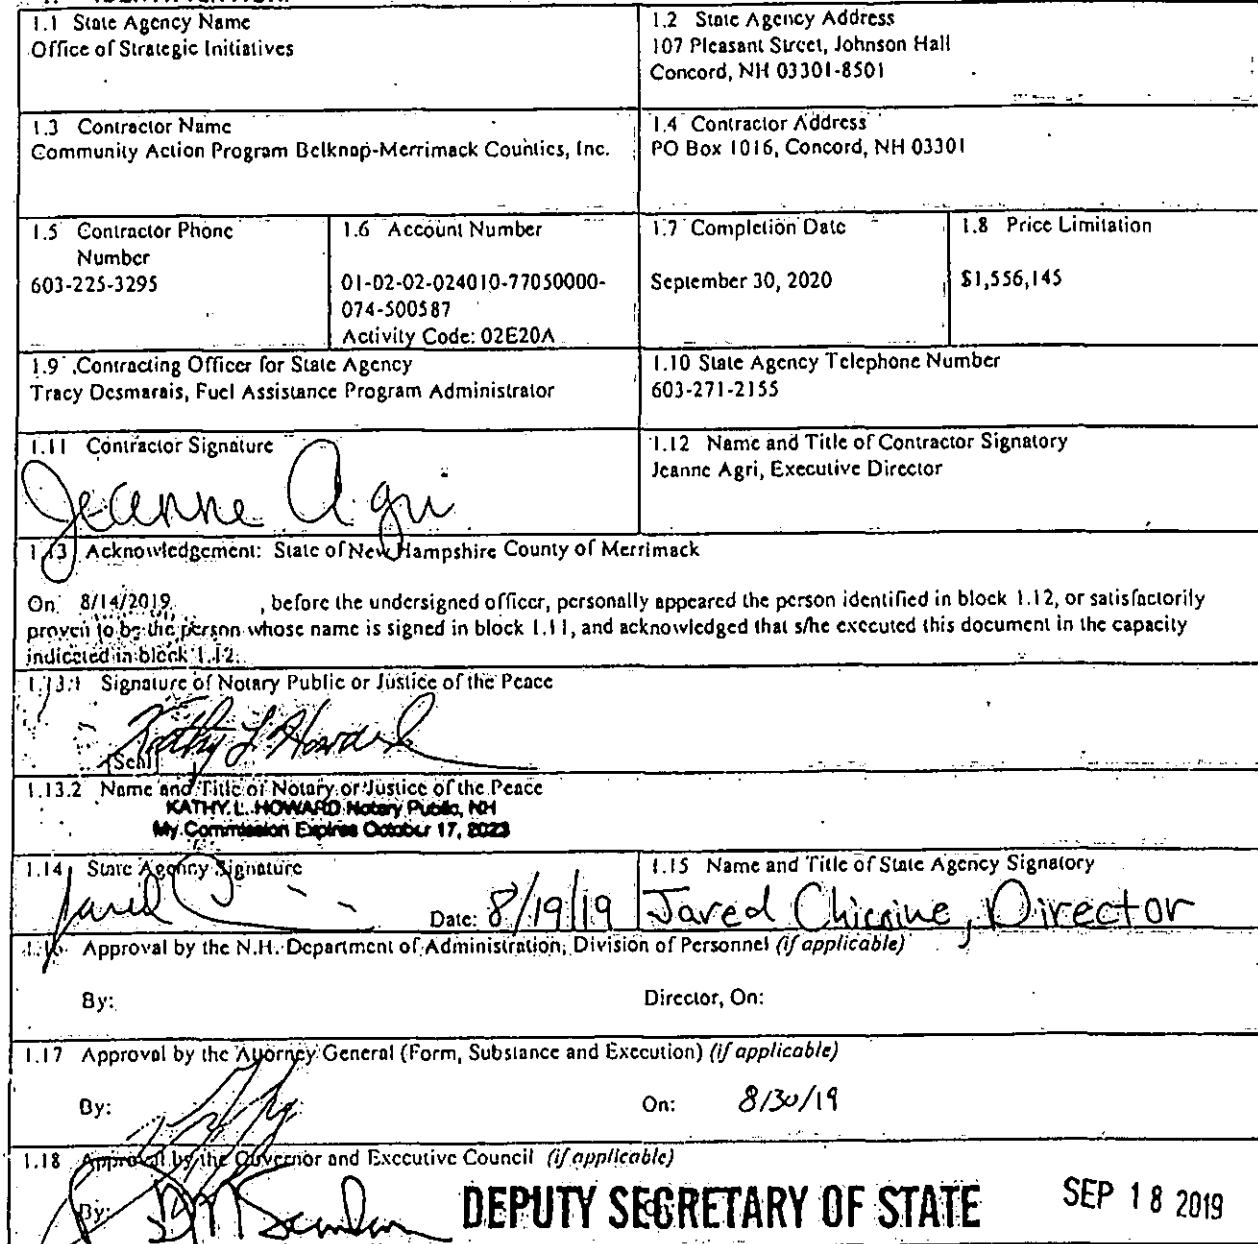 1.1 State Agency Name
Office of Strategic Initiatives
1.2 State Agency Address
107 Pleasant Street, Johnson Hall
Concord, NH 03301-8501
1.3 Contractor Name
Community Action Program Belknap-Merrimack Counties, Inc.
1.4 Contractor Address
PO Box 1016, Concord, NH 03301
1.5 Contractor Phone
Number
603-225-3295
1.6 Account Number
01-02-02-024010-77050000-
074-500587
Activity Code: 02E20A
1.7 Completion Date
September 30, 2020
1.8 Price Limitation
$1,556,145
1.9 Contracting Officer for State Agency
Tracy Desmarais, Fuel Assistance Program Administrator
1.10 State Agency Telephone Number
603-271-2155
1.11 Contractor Signature
Jeanne Agri
1.12 Name and Title of Contractor Signatory
Jeanne Agri, Executive Director
1.13 Acknowledgement: State of New Hampshire County of Merrimack
On 8/14/2019 , before the undersigned officer, personally appeared the person identified in block 1.12, or satisfactorily
proven to be the person whose name is signed in block 1.11, and acknowledged that s/he executed this document in the capacity
indicated in block 1.12.
1.13.1 Signature of Notary Public or Justice of the Peace
Kathy L Howard
[Seal]
1.13.2 Name and Title of Notary or Justice of the Peace
KATHY L. HOWARD Notary Public, NH
My Commission Expires October 17, 2023
1.14 State Agency Signature
Jared
Date: 8/19/19
1.15 Name and Title of State Agency Signatory
Jared Chicoine, Director
1.16 Approval by the N.H. Department of Administration, Division of Personnel (if applicable)
By:
Director, On:
1.17 Approval by the Attorney General (Form, Substance and Execution) (if applicable)
By:
On: 8/30/19
1.18 Approval by the Governor and Executive Council (if applicable)
By:
DEPUTY SECRETARY OF STATE
SEP 18 2019